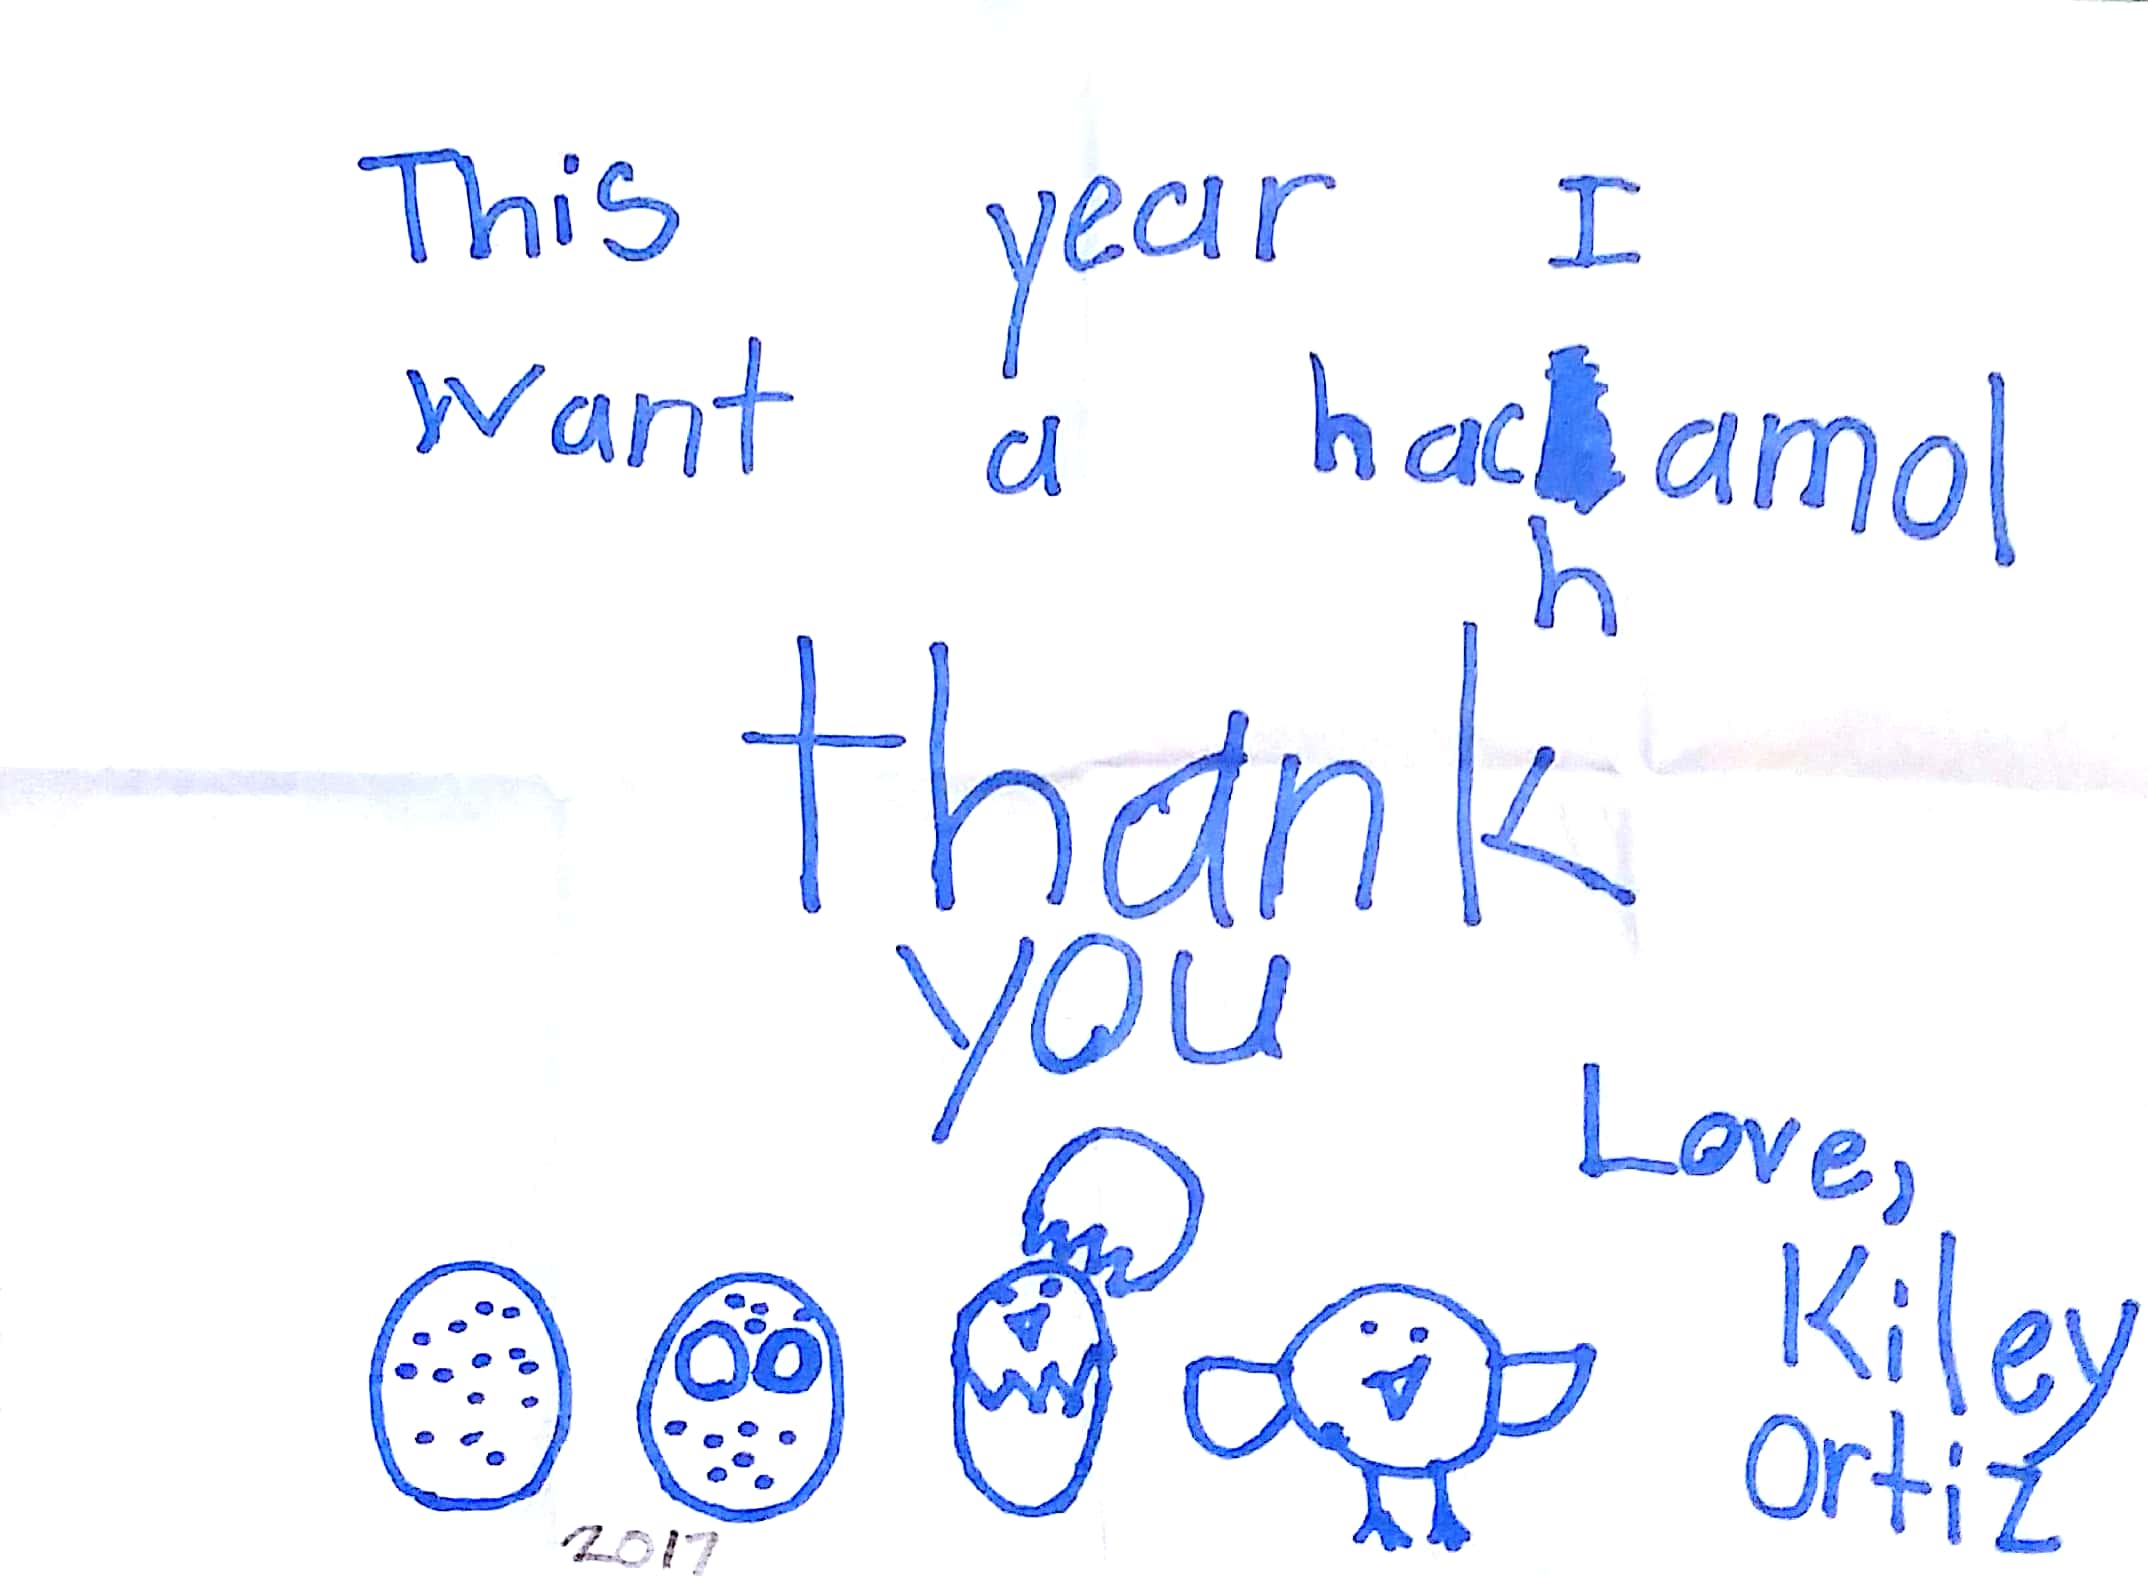 This year I
want a hachamol
thank
you
Love,
Kiley
Ortiz
2017